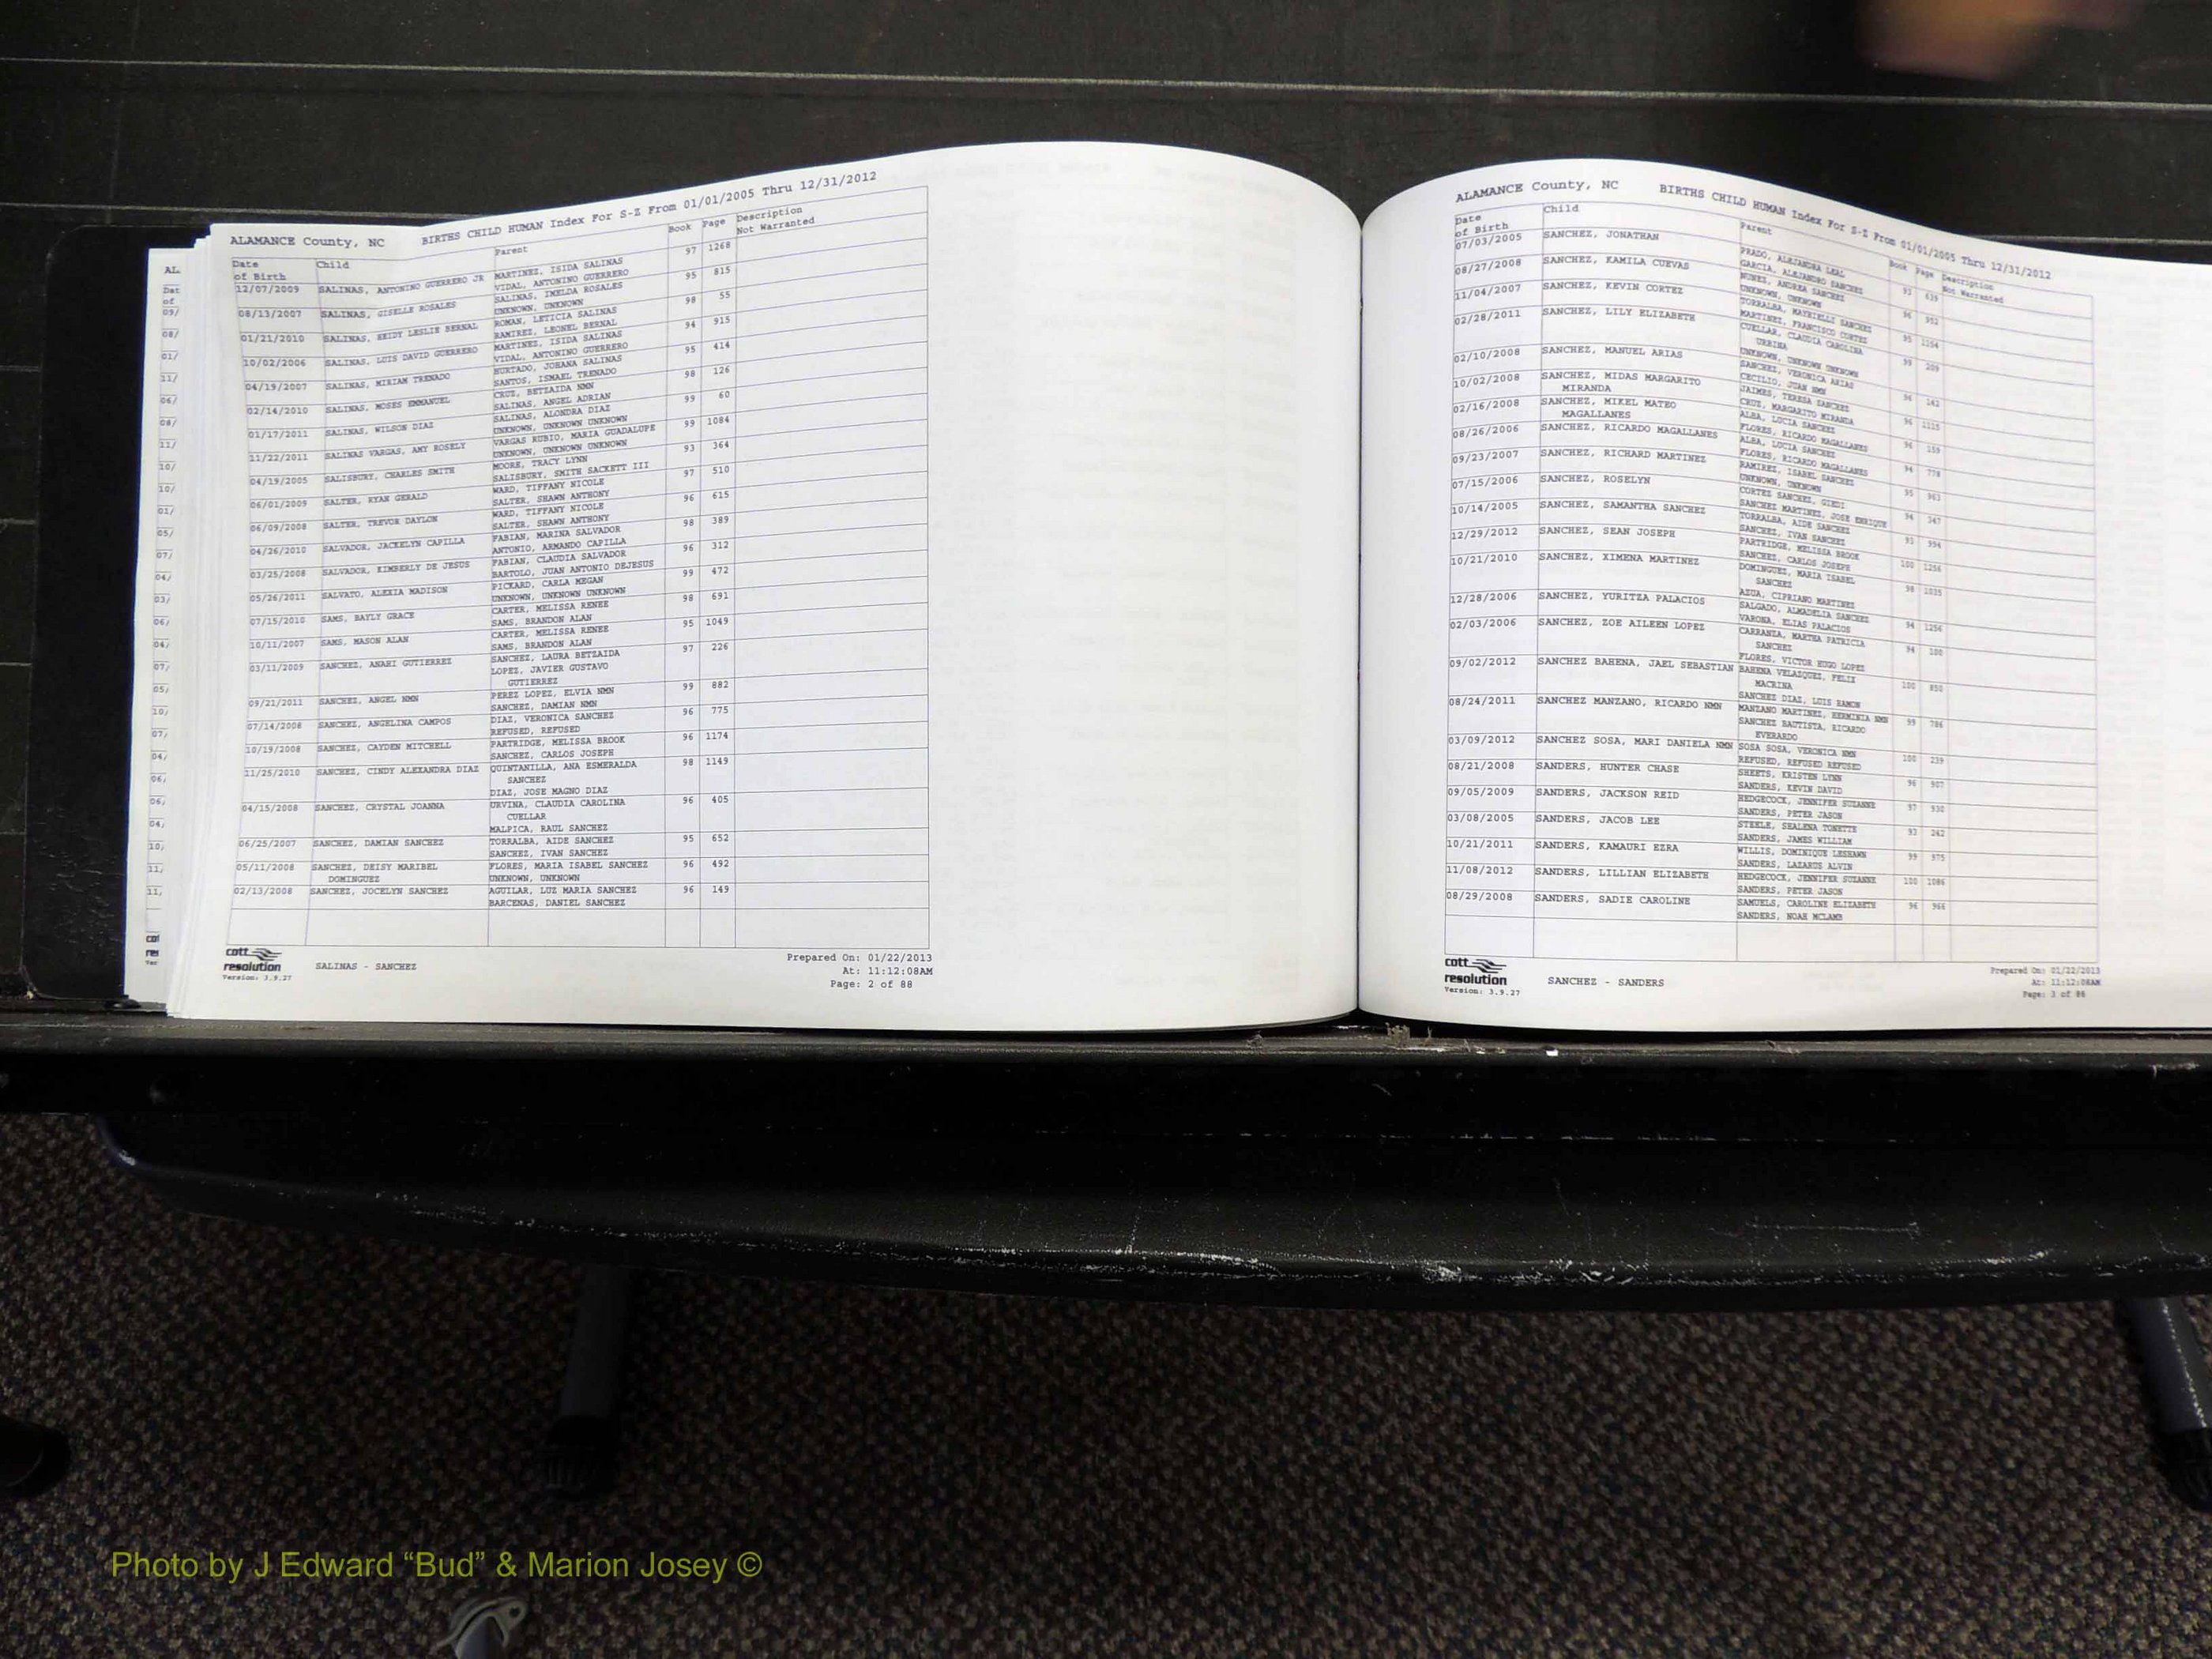 ALAMANCE County, NC BIRTHS CHILD HUMAN Index For S-Z From 01/01/2005 Thru 12/31/2012
Date of Birth Child Parent Book Page Description Not Warranted
12/07/2009 SALINAS, ANTONINO GUERRERO JR MARTINEZ, ISIDA SALINAS 97 1268
VIDAL, ANTONINO GUERRERO
08/13/2007 SALINAS, GISELLE ROSALES SALINAS, IMELDA ROSALES 95 815
UNKNOWN, UNKNOWN
01/21/2010 SALINAS, HEIDY LESLIE BERNAL ROMAN, LETICIA SALINAS 98 55
RAMIREZ, LEONEL BERNAL
10/02/2006 SALINAS, LUIS DAVID GUERRERO MARTINEZ, ISIDA SALINAS 94 915
VIDAL, ANTONINO GUERRERO
04/19/2007 SALINAS, MIRIAM TRENADO HURTADO, JOHANA SALINAS 95 414
SANTOS, ISMAEL TRENADO
02/14/2010 SALINAS, MOSES EMMANUEL CRUZ, BETZAIDA NMN 98 126
SALINAS, ANGEL ADRIAN
01/17/2011 SALINAS, WILSON DIAZ SALINAS, ALONDRA DIAZ 99 60
UNKNOWN, UNKNOWN UNKNOWN
11/22/2011 SALINAS VARGAS, AMY ROSELY VARGAS RUBIO, MARIA GUADALUPE 99 1084
UNKNOWN, UNKNOWN UNKNOWN
04/19/2005 SALISBURY, CHARLES SMITH MOORE, TRACY LYNN 93 364
SALISBURY, SMITH SACKETT III
06/01/2009 SALTER, RYAN GERALD WARD, TIFFANY NICOLE 97 510
SALTER, SHAWN ANTHONY
06/09/2008 SALTER, TREVOR DAYLON WARD, TIFFANY NICOLE 96 615
SALTER, SHAWN ANTHONY
04/26/2010 SALVADOR, JACKELYN CAPILLA FABIAN, MARINA SALVADOR 98 389
ANTONIO, ARMANDO CAPILLA
03/25/2008 SALVADOR, KIMBERLY DE JESUS FABIAN, CLAUDIA SALVADOR 96 312
BARTOLO, JUAN ANTONIO DEJESUS
05/26/2011 SALVATO, ALEXIA MADISON PICKARD, CARLA MEGAN 99 472
UNKNOWN, UNKNOWN UNKNOWN
07/15/2010 SAMS, BAYLY GRACE CARTER, MELISSA RENEE 98 691
SAMS, BRANDON ALAN
10/11/2007 SAMS, MASON ALAN CARTER, MELISSA RENEE 95 1049
SAMS, BRANDON ALAN
03/11/2009 SANCHEZ, ANAHI GUTIERREZ SANCHEZ, LAURA BETZAIDA 97 226
LOPEZ, JAVIER GUSTAVO
GUTIERREZ
09/21/2011 SANCHEZ, ANGEL NMN PEREZ LOPEZ, ELVIA NMN 99 882
SANCHEZ, DAMIAN NMN
07/14/2008 SANCHEZ, ANGELINA CAMPOS DIAZ, VERONICA SANCHEZ 96 775
REFUSED, REFUSED
10/19/2008 SANCHEZ, CAYDEN MITCHELL PARTRIDGE, MELISSA BROOK 96 1174
SANCHEZ, CARLOS JOSEPH
11/25/2010 SANCHEZ, CINDY ALEXANDRA DIAZ QUINTANILLA, ANA ESMERALDA 98 1149
SANCHEZ
DIAZ, JOSE MAGNO DIAZ
04/15/2008 SANCHEZ, CRYSTAL JOANNA URVINA, CLAUDIA CAROLINA 96 405
CUELLAR
MALPICA, RAUL SANCHEZ
06/25/2007 SANCHEZ, DAMIAN SANCHEZ TORRALBA, AIDE SANCHEZ 95 652
SANCHEZ, IVAN SANCHEZ
05/11/2008 SANCHEZ, DEISY MARIBEL FLORES, MARIA ISABEL SANCHEZ 96 492
DOMINGUEZ UNKNOWN, UNKNOWN
02/13/2008 SANCHEZ, JOCELYN SANCHEZ AGUILAR, LUZ MARIA SANCHEZ 96 149
BARCENAS, DANIEL SANCHEZ
cott
resolution
Version: 3.9.27
SALINAS - SANCHEZ
Prepared On: 01/22/2013
At: 11:12:08AM
Page: 2 of 88
ALAMANCE County, NC BIRTHS CHILD HUMAN Index For S-Z From 01/01/2005 Thru 12/31/2012
Date of Birth Child Parent Book Page Description Not Warranted
07/03/2005 SANCHEZ, JONATHAN PRADO, ALEJANDRA LEAL 93 639
GARCIA, ALEJANDRO SANCHEZ
08/27/2008 SANCHEZ, KAMILA CUEVAS NUNEZ, ANDREA SANCHEZ 96 952
UNKNOWN, UNKNOWN
11/04/2007 SANCHEZ, KEVIN CORTEZ TORRALBA, MAYRIELLS SANCHEZ 95 1154
MARTINEZ, FRANCISCO CORTES
02/28/2011 SANCHEZ, LILY ELIZABETH CUELLAR, CLAUDIA CAROLINA 99 209
URBINA
UNKNOWN, UNKNOWN UNKNOWN
02/10/2008 SANCHEZ, MANUEL ARIAS SANCHEZ, VERONICA ARIAS 96 142
CECILIO, JUAN NMN
10/02/2008 SANCHEZ, MIDAS MARGARITO JAIMES, TERESA SANCHEZ 96 1115
MIRANDA CRUZ, MARGARITO MIRANDA
02/16/2008 SANCHEZ, MIKEL MATEO ALBA, LUCIA SANCHEZ 96 159
MAGALLANES FLORES, RICARDO MAGALLANES
08/26/2006 SANCHEZ, RICARDO MAGALLANES ALBA, LUCIA SANCHEZ 94 778
FLORES, RICARDO MAGALLANES
09/23/2007 SANCHEZ, RICHARD MARTINEZ RAMIREZ, ISABEL SANCHEZ 95 963
UNKNOWN, UNKNOWN
07/15/2006 SANCHEZ, ROSELYN CORTEZ SANCHEZ, GIEDI 94 547
SANCHEZ MARTINEZ, JOSE ENRIQUE
10/14/2005 SANCHEZ, SAMANTHA SANCHEZ TORRALBA, AIDE SANCHEZ 93 994
SANCHEZ, IVAN SANCHEZ
12/29/2012 SANCHEZ, SEAN JOSEPH PARTRIDGE, MELISSA BROOK 100 1256
SANCHEZ, CARLOS JOSEPH
10/21/2010 SANCHEZ, XIMENA MARTINEZ DOMINGUEZ, MARIA ISABEL 98 1035
SANCHEZ
AZUA, CIPRIANO MARTINEZ
12/28/2006 SANCHEZ, YURITZA PALACIOS SALGADO, ALMADELIA SANCHEZ 94 1256
VARONA, ELIAS PALACIOS
02/03/2006 SANCHEZ, ZOE AILEEN LOPEZ CARRANZA, MARTHA PATRICIA 94 100
SANCHEZ
FLORES, VICTOR HUGO LOPEZ
09/02/2012 SANCHEZ BAHENA, JAEL SEBASTIAN BAHENA VELAZQUEZ, FELIX 100 850
MACRINA
SANCHEZ DIAZ, LUIS RAMON
08/24/2011 SANCHEZ MANZANO, RICARDO NMN MANZANO MARTINEZ, HERMINIA NMN 99 786
SANCHEZ BAUTISTA, RICARDO
EVERARDO
03/09/2012 SANCHEZ SOSA, MARI DANIELA NMN SOSA SOSA, VERONICA NMN 100 239
REFUSED, REFUSED REFUSED
08/21/2008 SANDERS, HUNTER CHASE SHEETS, KRISTEN LYNN 96 907
SANDERS, KEVIN DAVID
09/05/2009 SANDERS, JACKSON REID HEDGECOCK, JENNIFER SUZANNE 97 930
SANDERS, PETER JASON
03/08/2005 SANDERS, JACOB LEE STEELE, SHALENA TONETTE 93 242
SANDERS, JAMES WILLIAM
10/21/2011 SANDERS, KAMAURI EZRA WILLIS, DOMINIQUE LESHAWN 99 975
SANDERS, LAZARUS ALVIN
11/08/2012 SANDERS, LILLIAN ELIZABETH HEDGECOCK, JENNIFER SUZANNE 100 1086
SANDERS, PETER JASON
08/29/2008 SANDERS, SADIE CAROLINE SAMUELS, CAROLINE ELIZABETH 96 966
SANDERS, NOAH MCLAMB
cott
resolution
Version: 3.9.27
SANCHEZ - SANDERS
Prepared On: 01/22/2013
At: 11:12:08AM
Page: 3 of 88
Photo by J Edward “Bud” & Marion Josey ©